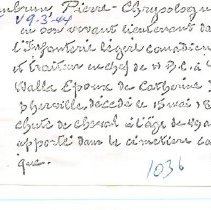 Pierre-Chrysologue
v 9-3-44
en son vivant lieutenant da
l'Infanterie légère canadien
et traiteur en chef de
Walla Epoux de Catherine
décédé le 15 mai 18
chute de cheval à l'âge de
apporté dans le cimetière ca
que.
1036